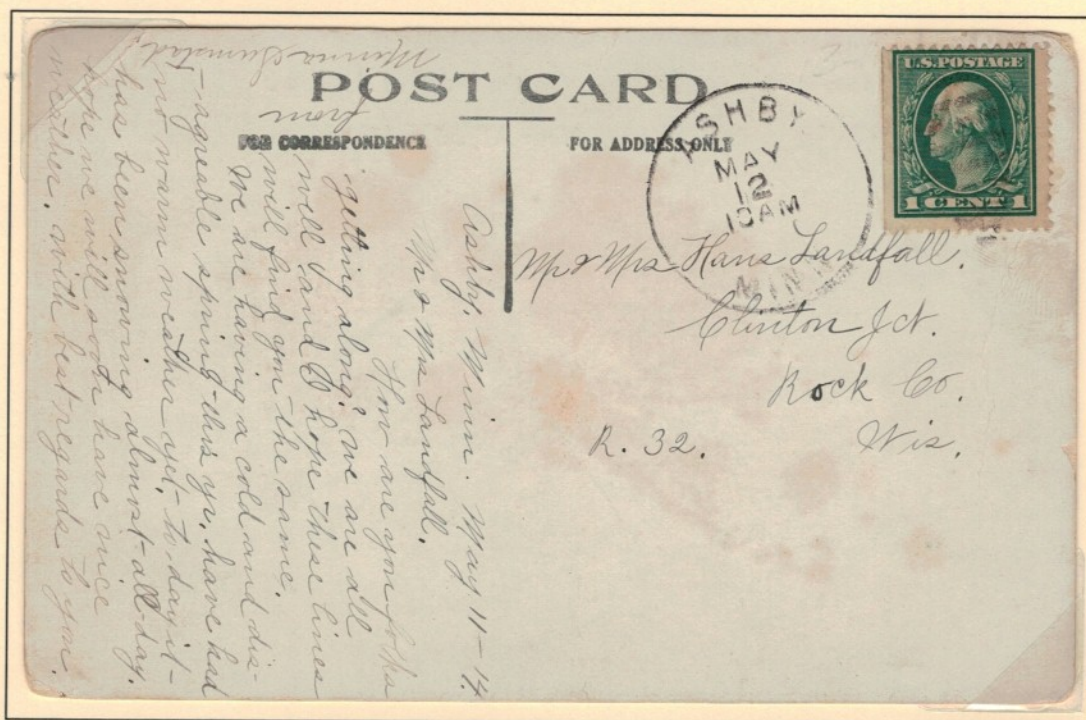 POST CARD
FOR CORRESPONDENCE
FOR ADDRESS ONLY
U.S. POSTAGE
1 CENT 1
ASHBY
MAY
12
10AM
MINN
Mr & Mrs Hans Landfall.
Clinton Jct.
Rock Co.
R. 32. Wis.
Ashby, Minn. May 11-14.
Mr & Mrs Landfall.
How are you folks
getting along? we are all
well, and hope these lines
will find you the same.
We are having a cold and dis-
-agreable spring this yr. have had
no warm weather yet, to day it-
has been snowing almost all day.
hope we will soon have nice
weather. with best regards to you.
from
Minna